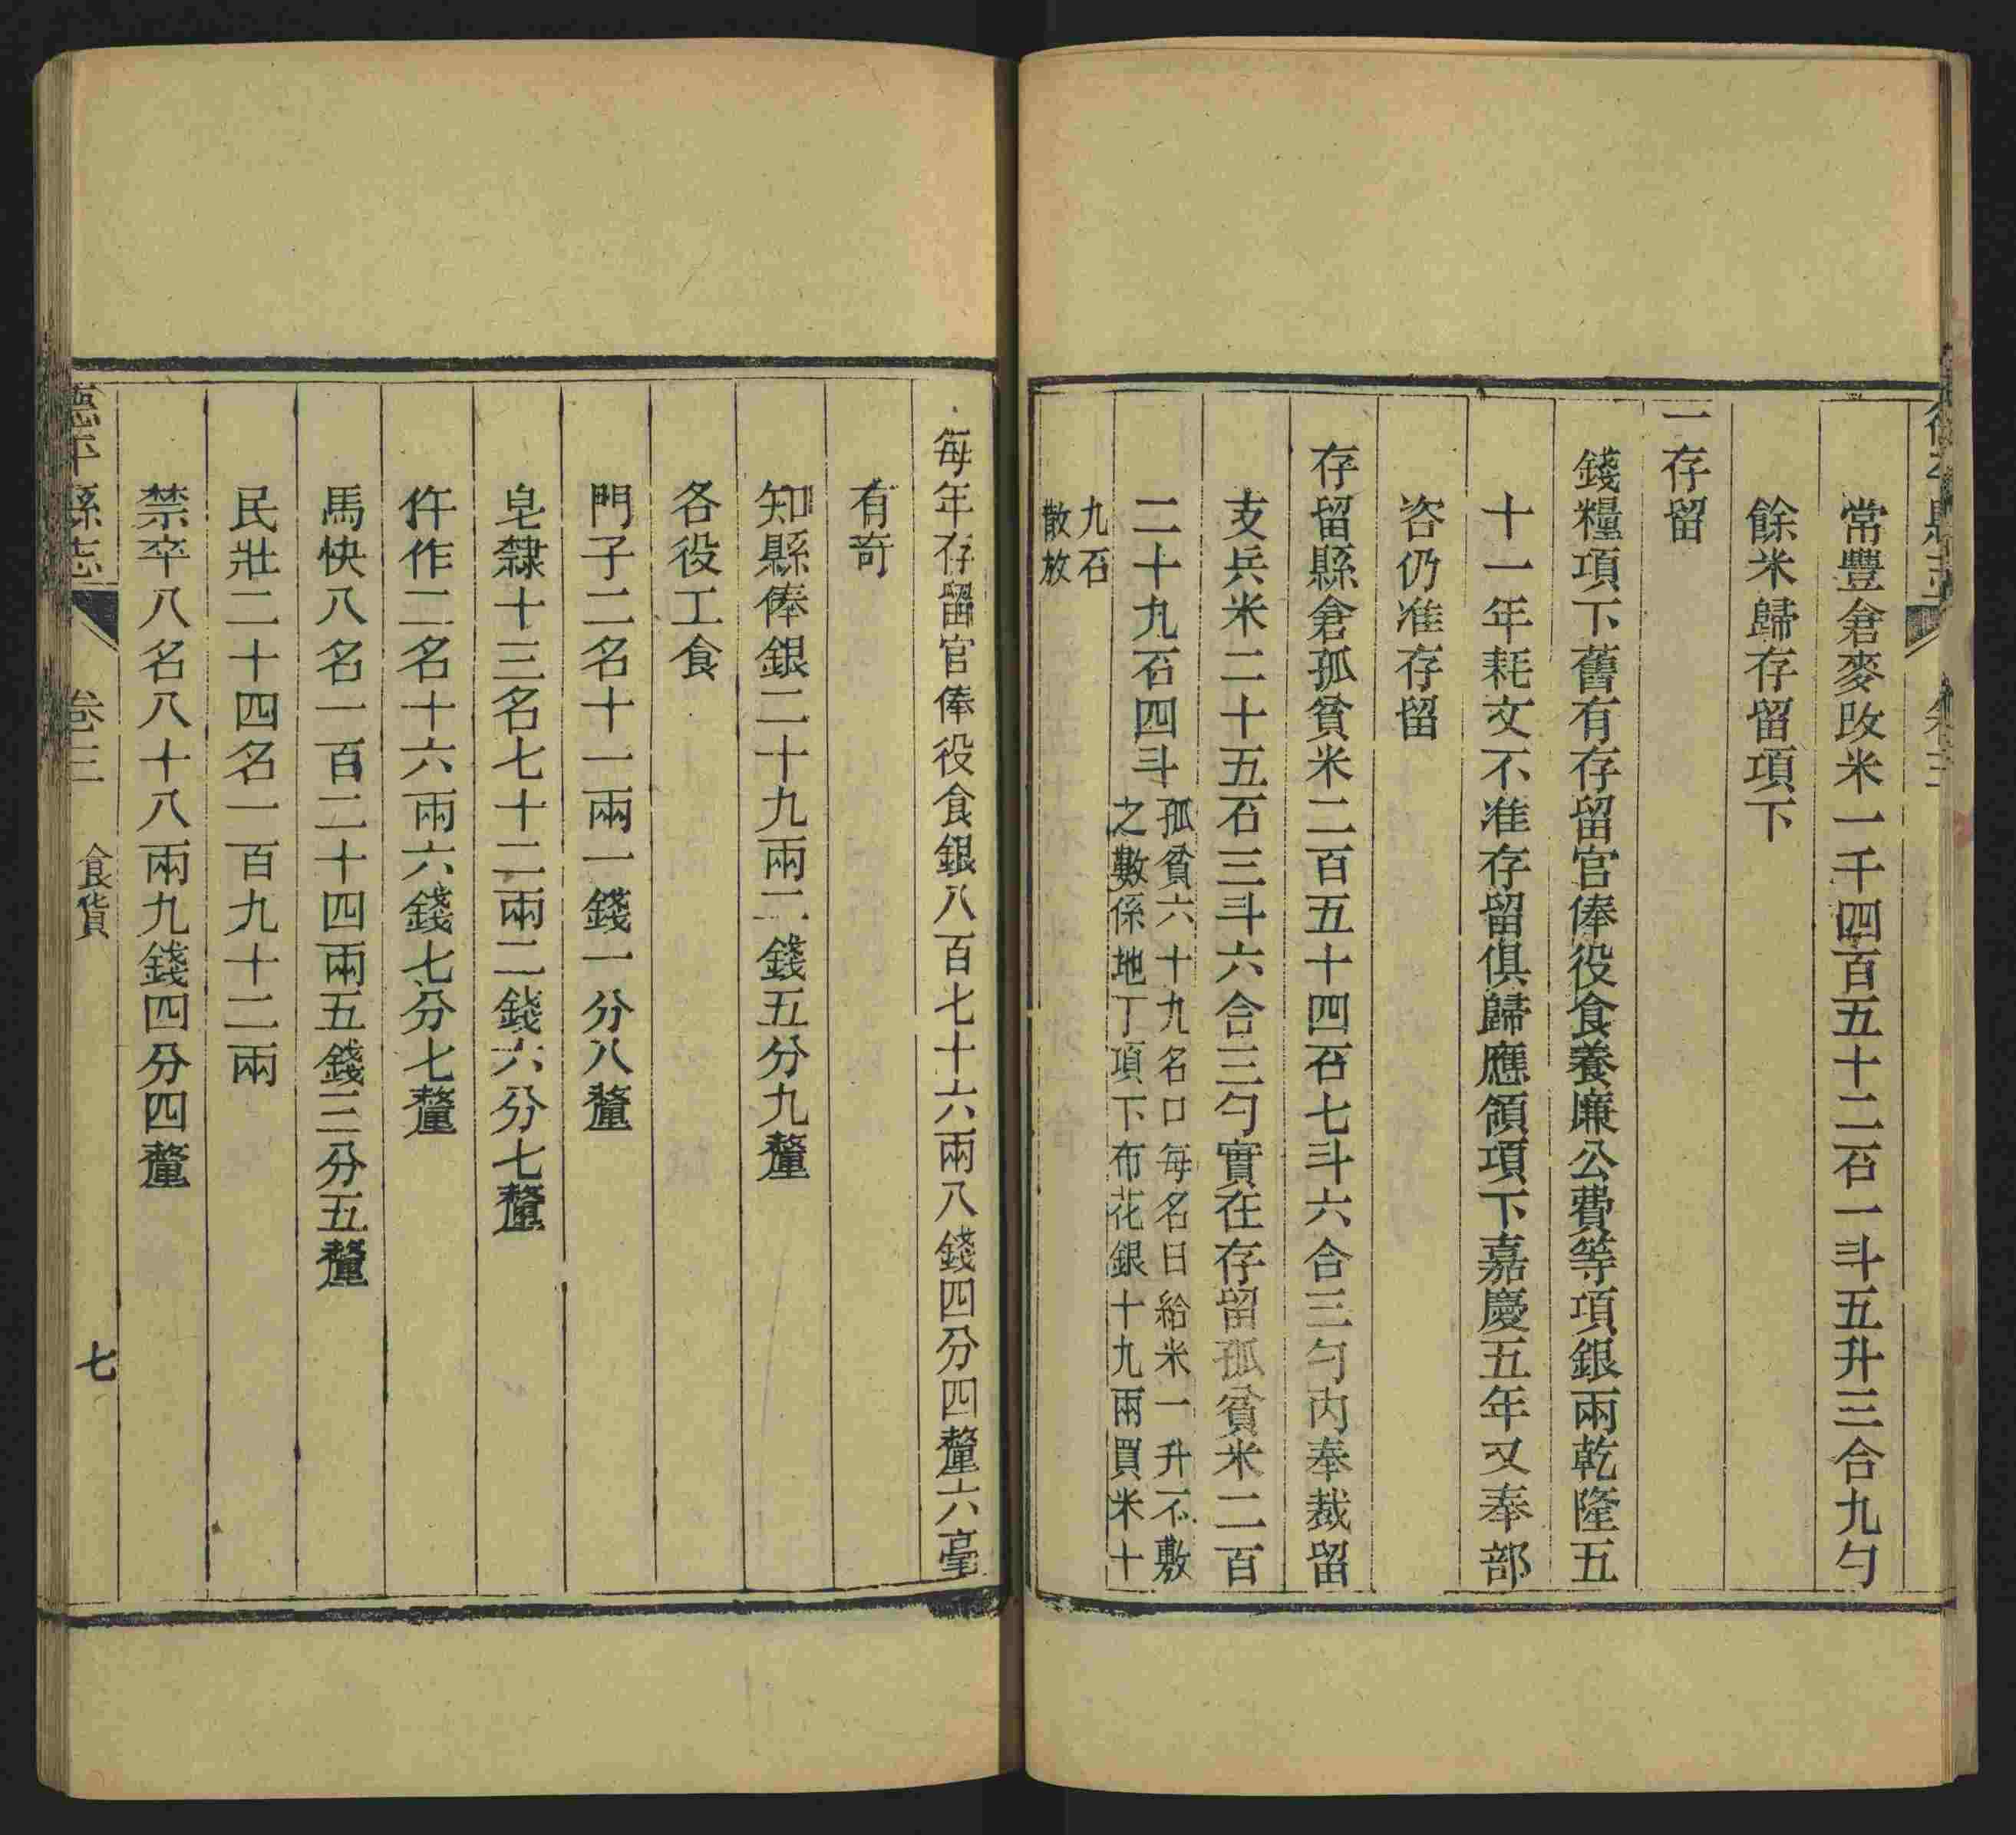 常豐倉麥改米一千四百五十二石一斗五升三合九勺
餘米歸存留項下
一存留
錢糧項下舊有存留官俸役食養廉公費等項銀兩乾隆五
十一年耗文不准存留俱歸應領項下嘉慶五年又奉部
咨仍准存留
存留縣倉孤貧米二百五十四石七斗六合三勺內奉裁留
支兵米二十五石三斗六合三勺實在存留孤貧米二百
二十九石四斗
孤貧六十九名口每名日給米一升不敷
之數係地丁項下布花銀十九兩買米十
九石
散放
每年存留官俸役食銀八百七十六兩八錢四分四釐六毫
有奇
知縣俸銀二十九兩二錢五分九釐
各役工食
門子二名十一兩一錢一分八釐
皂隸十三名七十二兩二錢六分七釐
仵作二名十六兩六錢七分七釐
馬快八名一百二十四兩五錢三分五釐
民壯二十四名一百九十二兩
禁卒八名八十八兩九錢四分四釐
平縣志 卷三 食貨 七